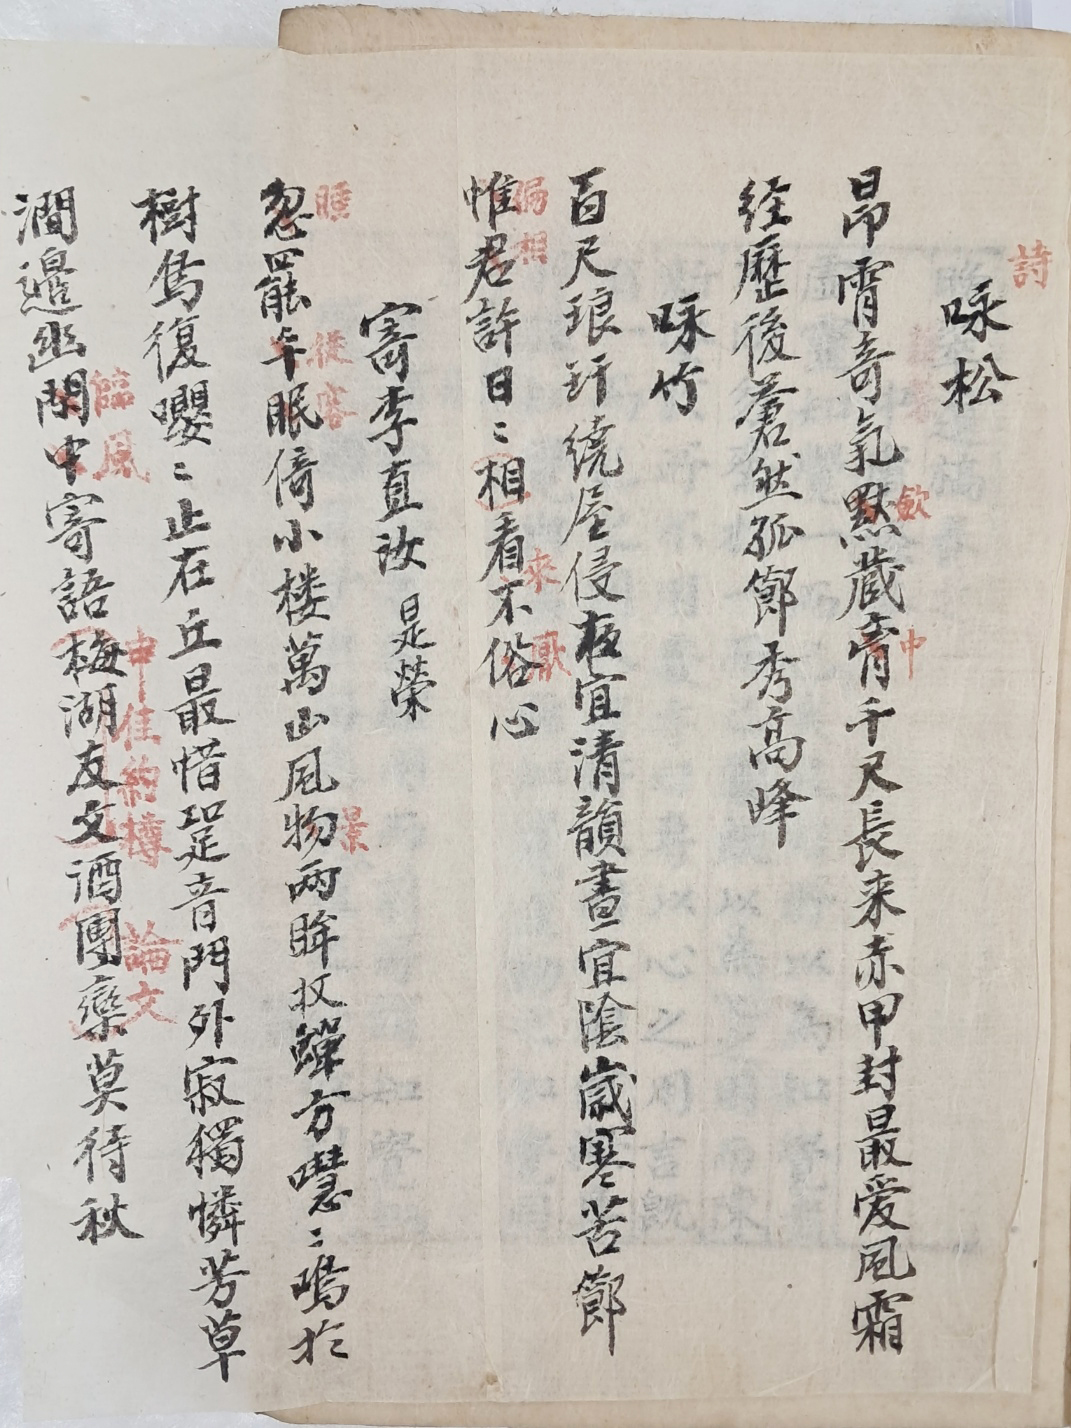 詩
咏松
昂霄奇氣默蔵膏千尺長来赤甲封最爱风霜
歛
中
经歷後蒼然孤節秀高峰
咏竹
百尺琅玕绕屋侵夜宜清韻晝宜陰歲寒苦節
惟君許日〻相看不俗心
偏相
来
厭
寄李直汝 是榮
忽罷午眠倚小楼萬山风物两眸收蟬方嘒〻鳴於
睡
従容
景
樹鳥復嚶〻止在丘最惜跫音門外寂獨憐芳草
澗邉幽閑中寄語梅湖友文酒團欒莫待秋
臨風
申佳約樽
論文